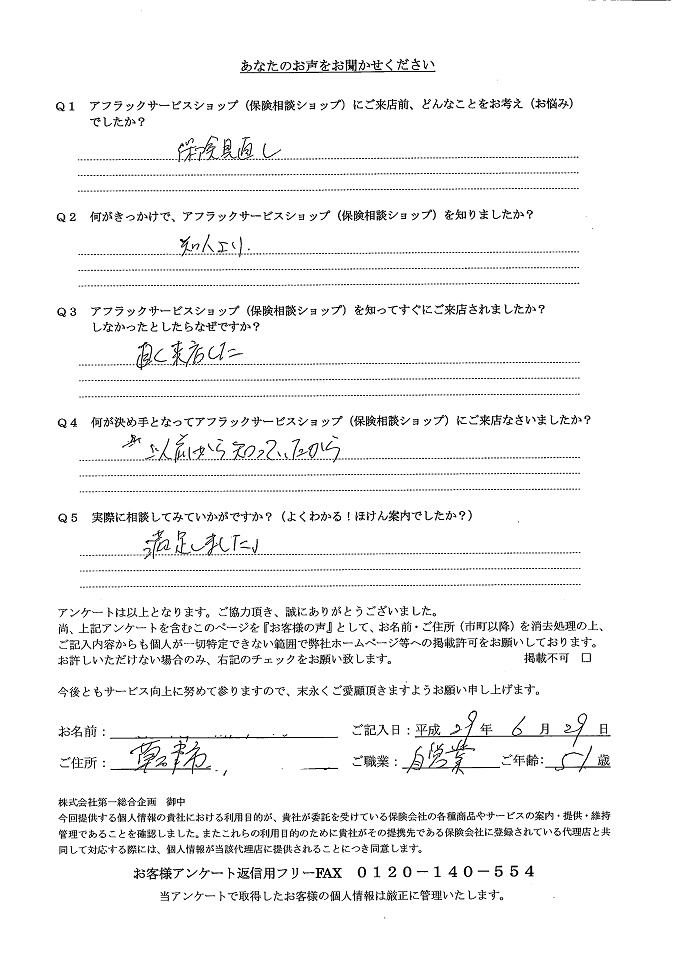 あなたのお声をお聞かせください
Q1 アフラックサービスショップ（保険相談ショップ）にご来店前、どんなことをお考え（お悩み）
でしたか？
保険見直し
Q2 何がきっかけで、アフラックサービスショップ（保険相談ショップ）を知りましたか？
知人より.
Q3 アフラックサービスショップ（保険相談ショップ）を知ってすぐにご来店されましたか？
しなかったとしたらなぜですか？
直ぐ来店した
Q4 何が決め手となってアフラックサービスショップ（保険相談ショップ）にご来店なさいましたか？
以前から知っていたから
Q5 実際に相談してみていかがですか？（よくわかる！ほけん案内でしたか？）
満足しました
アンケートは以上となります。ご協力頂き、誠にありがとうございました。
尚、上記アンケートを含むこのページを『お客様の声』として、お名前・ご住所（市町以降）を消去処理の上、
ご記入内容からも個人が一切特定できない範囲で弊社ホームページ等への掲載許可をお願いしております。
お許しいただけない場合のみ、右記のチェックをお願い致します。 掲載不可 □
今後ともサービス向上に努めて参りますので、末永くご愛顧頂きますようお願い申し上げます。
お名前： ご記入日：平成 29 年 6 月 29 日
ご住所： 草津市 ご職業： 自営業 ご年齢： 51 歳
株式会社第一総合企画 御中
今回提供する個人情報の貴社における利用目的が、貴社が委託を受けている保険会社の各種商品やサービスの案内・提供・維持
管理であることを確認しました。またこれらの利用目的のために貴社がその提携先である保険会社に登録されている代理店と共
同して対応する際には、個人情報が当該代理店に提供されることにつき同意します。
お客様アンケート返信用フリーFAX 0120-140-554
当アンケートで取得したお客様の個人情報は厳正に管理いたします。